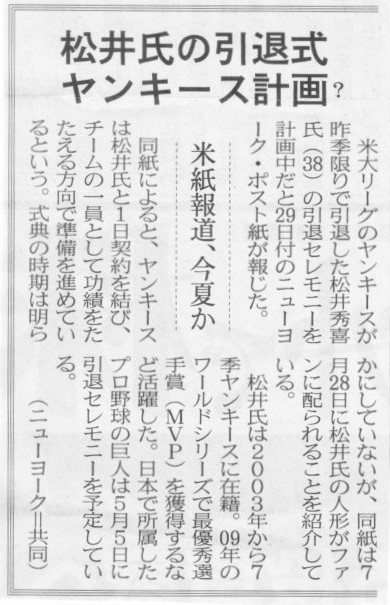 松井氏の引退式
ヤンキース計画?
米紙報道、今夏か
米大リーグのヤンキースが
昨季限りで引退した松井秀喜
氏（38）の引退セレモニーを
計画中だと29日付のニューヨ
ーク・ポスト紙が報じた。
同紙によると、ヤンキース
は松井氏と1日契約を結び、
チームの一員として功績をた
たえる方向で準備を進めてい
るという。式典の時期は明ら
かにしていないが、同紙は7
月28日に松井氏の人形がファ
ンに配られることを紹介して
いる。
松井氏は2003年から7
季ヤンキースに在籍。09年の
ワールドシリーズで最優秀選
手賞（MVP）を獲得するな
ど活躍した。日本で所属した
プロ野球の巨人は5月5日に
引退セレモニーを予定してい
る。
（ニューヨーク＝共同）